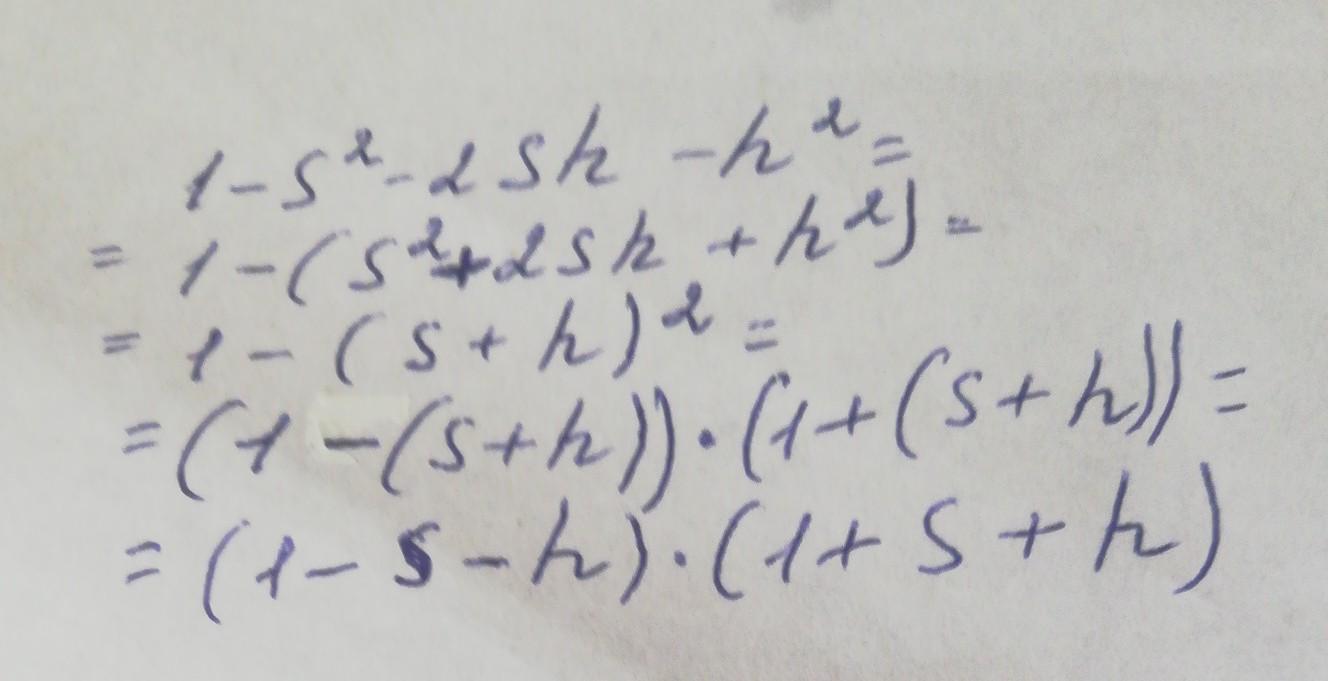 1-s²-2sh -h²=
= 1-(s²+2sh +h²)=
= 1-(s+h)²=
=(1-(s+h))·(1+(s+h))=
=(1-s-h)·(1+s+h)